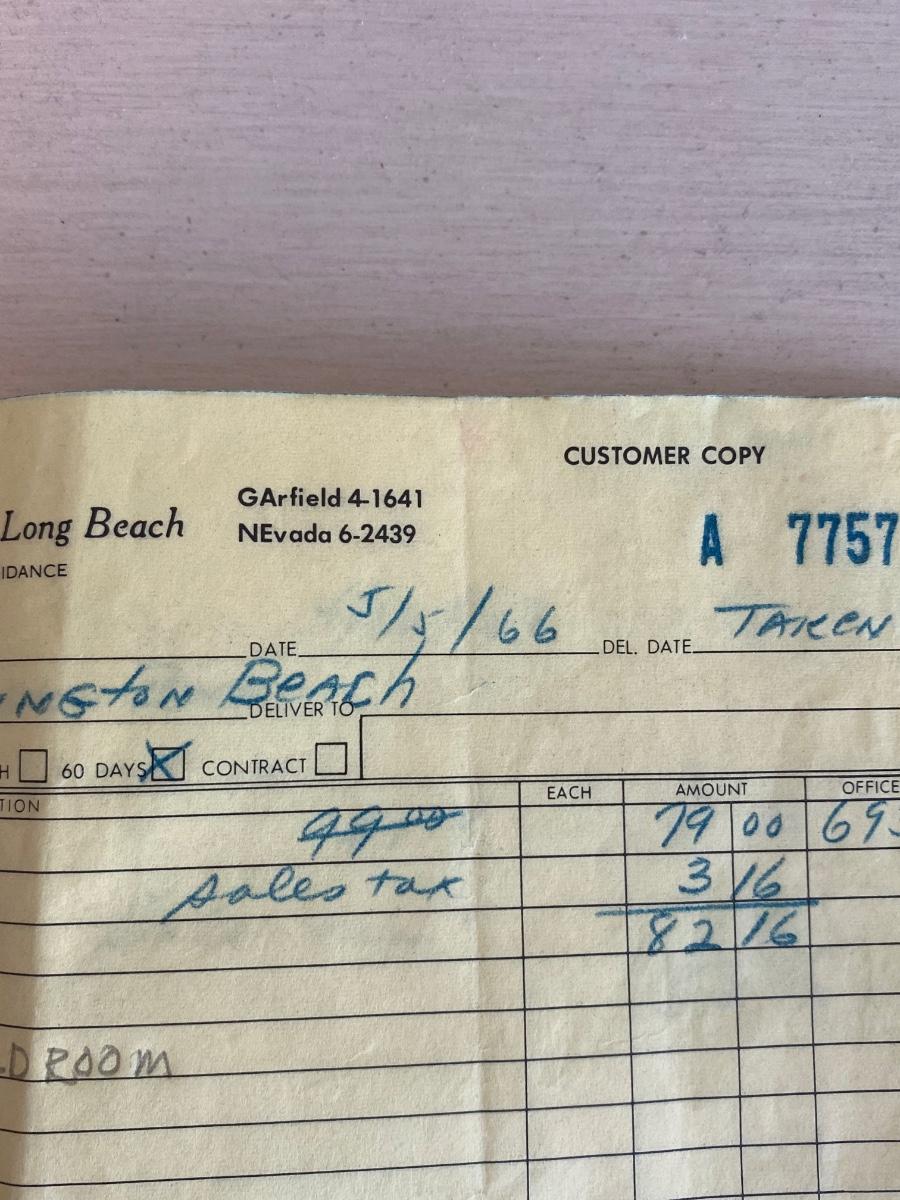 CUSTOMER COPY
Long Beach GArfield 4-1641
NEvada 6-2439
A 7757
IDANCE
DATE 5/5/66 DEL. DATE TAKEN
NGTON BEACH
DELIVER TO
H 60 DAYS X CONTRACT
TION EACH AMOUNT OFFICE
99 00 79 00 69
sales tax 3 16
82 16
D ROOM